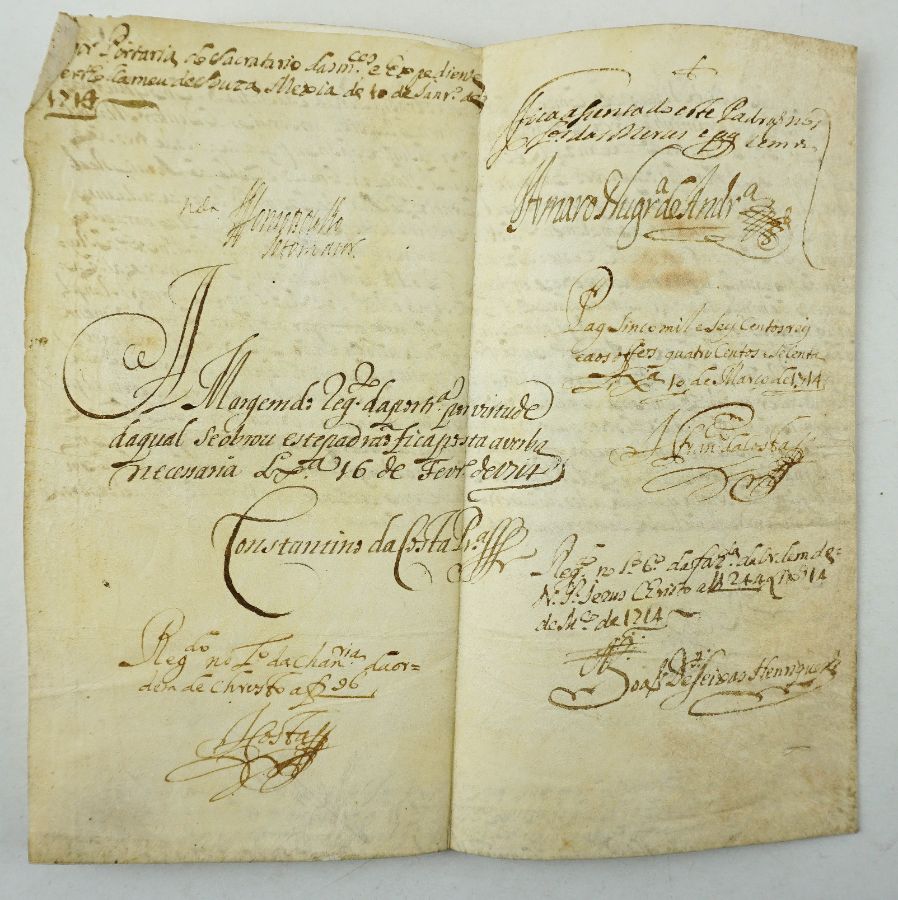 Por Portaria do Sacratario das m.ces e Expediente
Bertolameu de Souza Mexia de 10 de Janr.o de
1714
A Margem do Reg.o da port.a por virtude
da qual se obrou este padraõ fica posta a verba
necessaria Lx.a 16 de Fevr.o de 1714
Constantino da Costa Pr.a
Reg.do no L.o da Chan.ria da or-
dem de Christo a f 96
Costa
Fica asentado este Padraõ no
L.o das Merces
Amaro Nugr.a de Andr.a
Pag sinco mil e seis Centos reis
e aos offes quatro Centos e setenta
Lx.a 10 de Marco de 1714
da Costa
Reg.do no L.o 6.o da faz.da da ordem de
N. S.r Jezus Christo a f 244 14
de M.co de 1714
Joaõ de Seixas Henriques